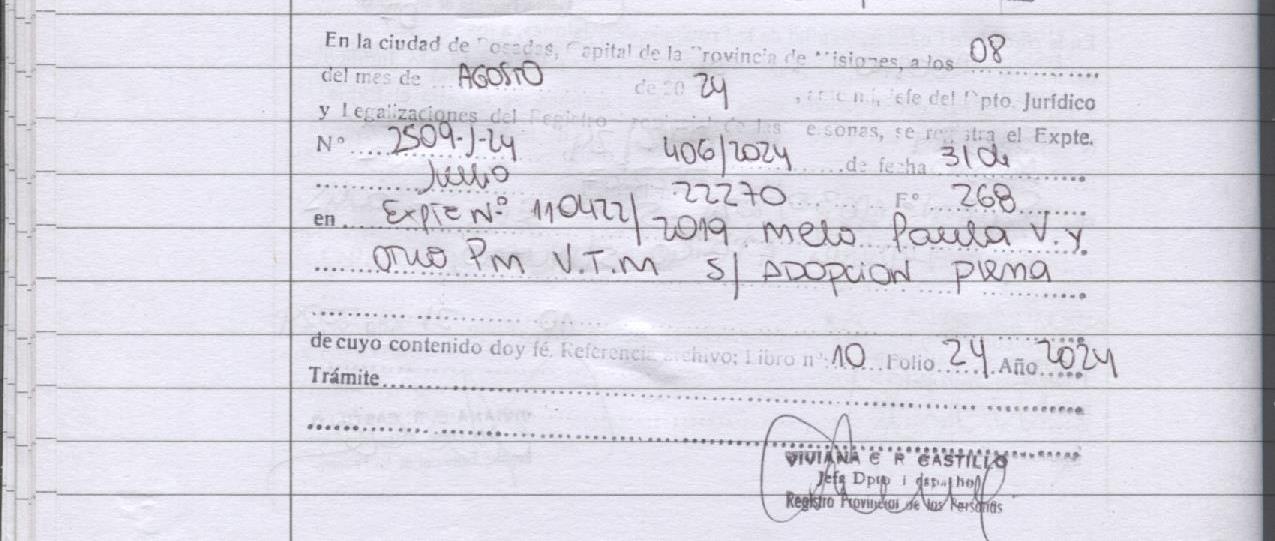 En la ciudad de Posadas, Capital de la Provincia de Misiones, a los 08
del mes de AGOSTO de 20 24, ante mí, Jefe del Dpto. Jurídico
y Legalizaciones del Registro Provincial de las Personas, se registra el Expte.
N° 2509-J-24 406/2024 de fecha 31 de
Julio 22270 F° 268
en Expte Nº 110422/2019 Melo Paula V. y
otro PM V.T.M S/ ADOPCION plena
de cuyo contenido doy fé. Referencia archivo: Libro n° 10 Folio 24 Año 2024
Trámite
VIVIANA E R CASTILLO
Jefa Dpto
Registro Provincial de las Personas